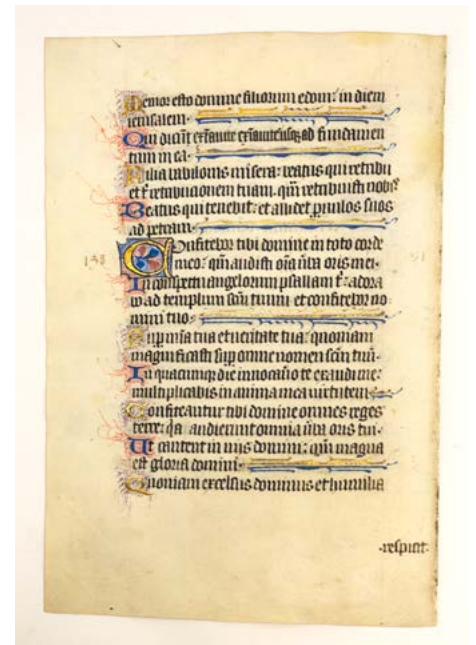 Memor esto domine filiorum edom: in diem
ierusalem.
Qui dicūt exīanite exīanite usq ad fundamen
tum in ea.
Filia babilonis misera: beatus qui retribu
et t̄ retribucionem tuam. qm̄ retribuisti nobis
Beatus qui tenebit: et allidet paruulos suos
ad petram.
138 Confitebor tibi domine in toto corde
meo: qm̄ audisti oīa ūba oris mei.
In conspectu angelorum psallam t̄: adora
bo ad templum scm̄ tuum et confitebor no
mini tuo.
Sup mīa tua et ueritate tua: quoniam
magnificasti sup omne nomen scm̄ tuū.
In quacumque die inuocauero te exaudi me:
multiplicabis in anima mea uirtutem.
Confiteantur tibi domine omnes reges
terre: qa audierunt omnia ūba oris tui.
Et cantent in uiis domini: qm̄ magna
est gloria domini.
Quoniam excelsus dominus et humilia
.respicit.